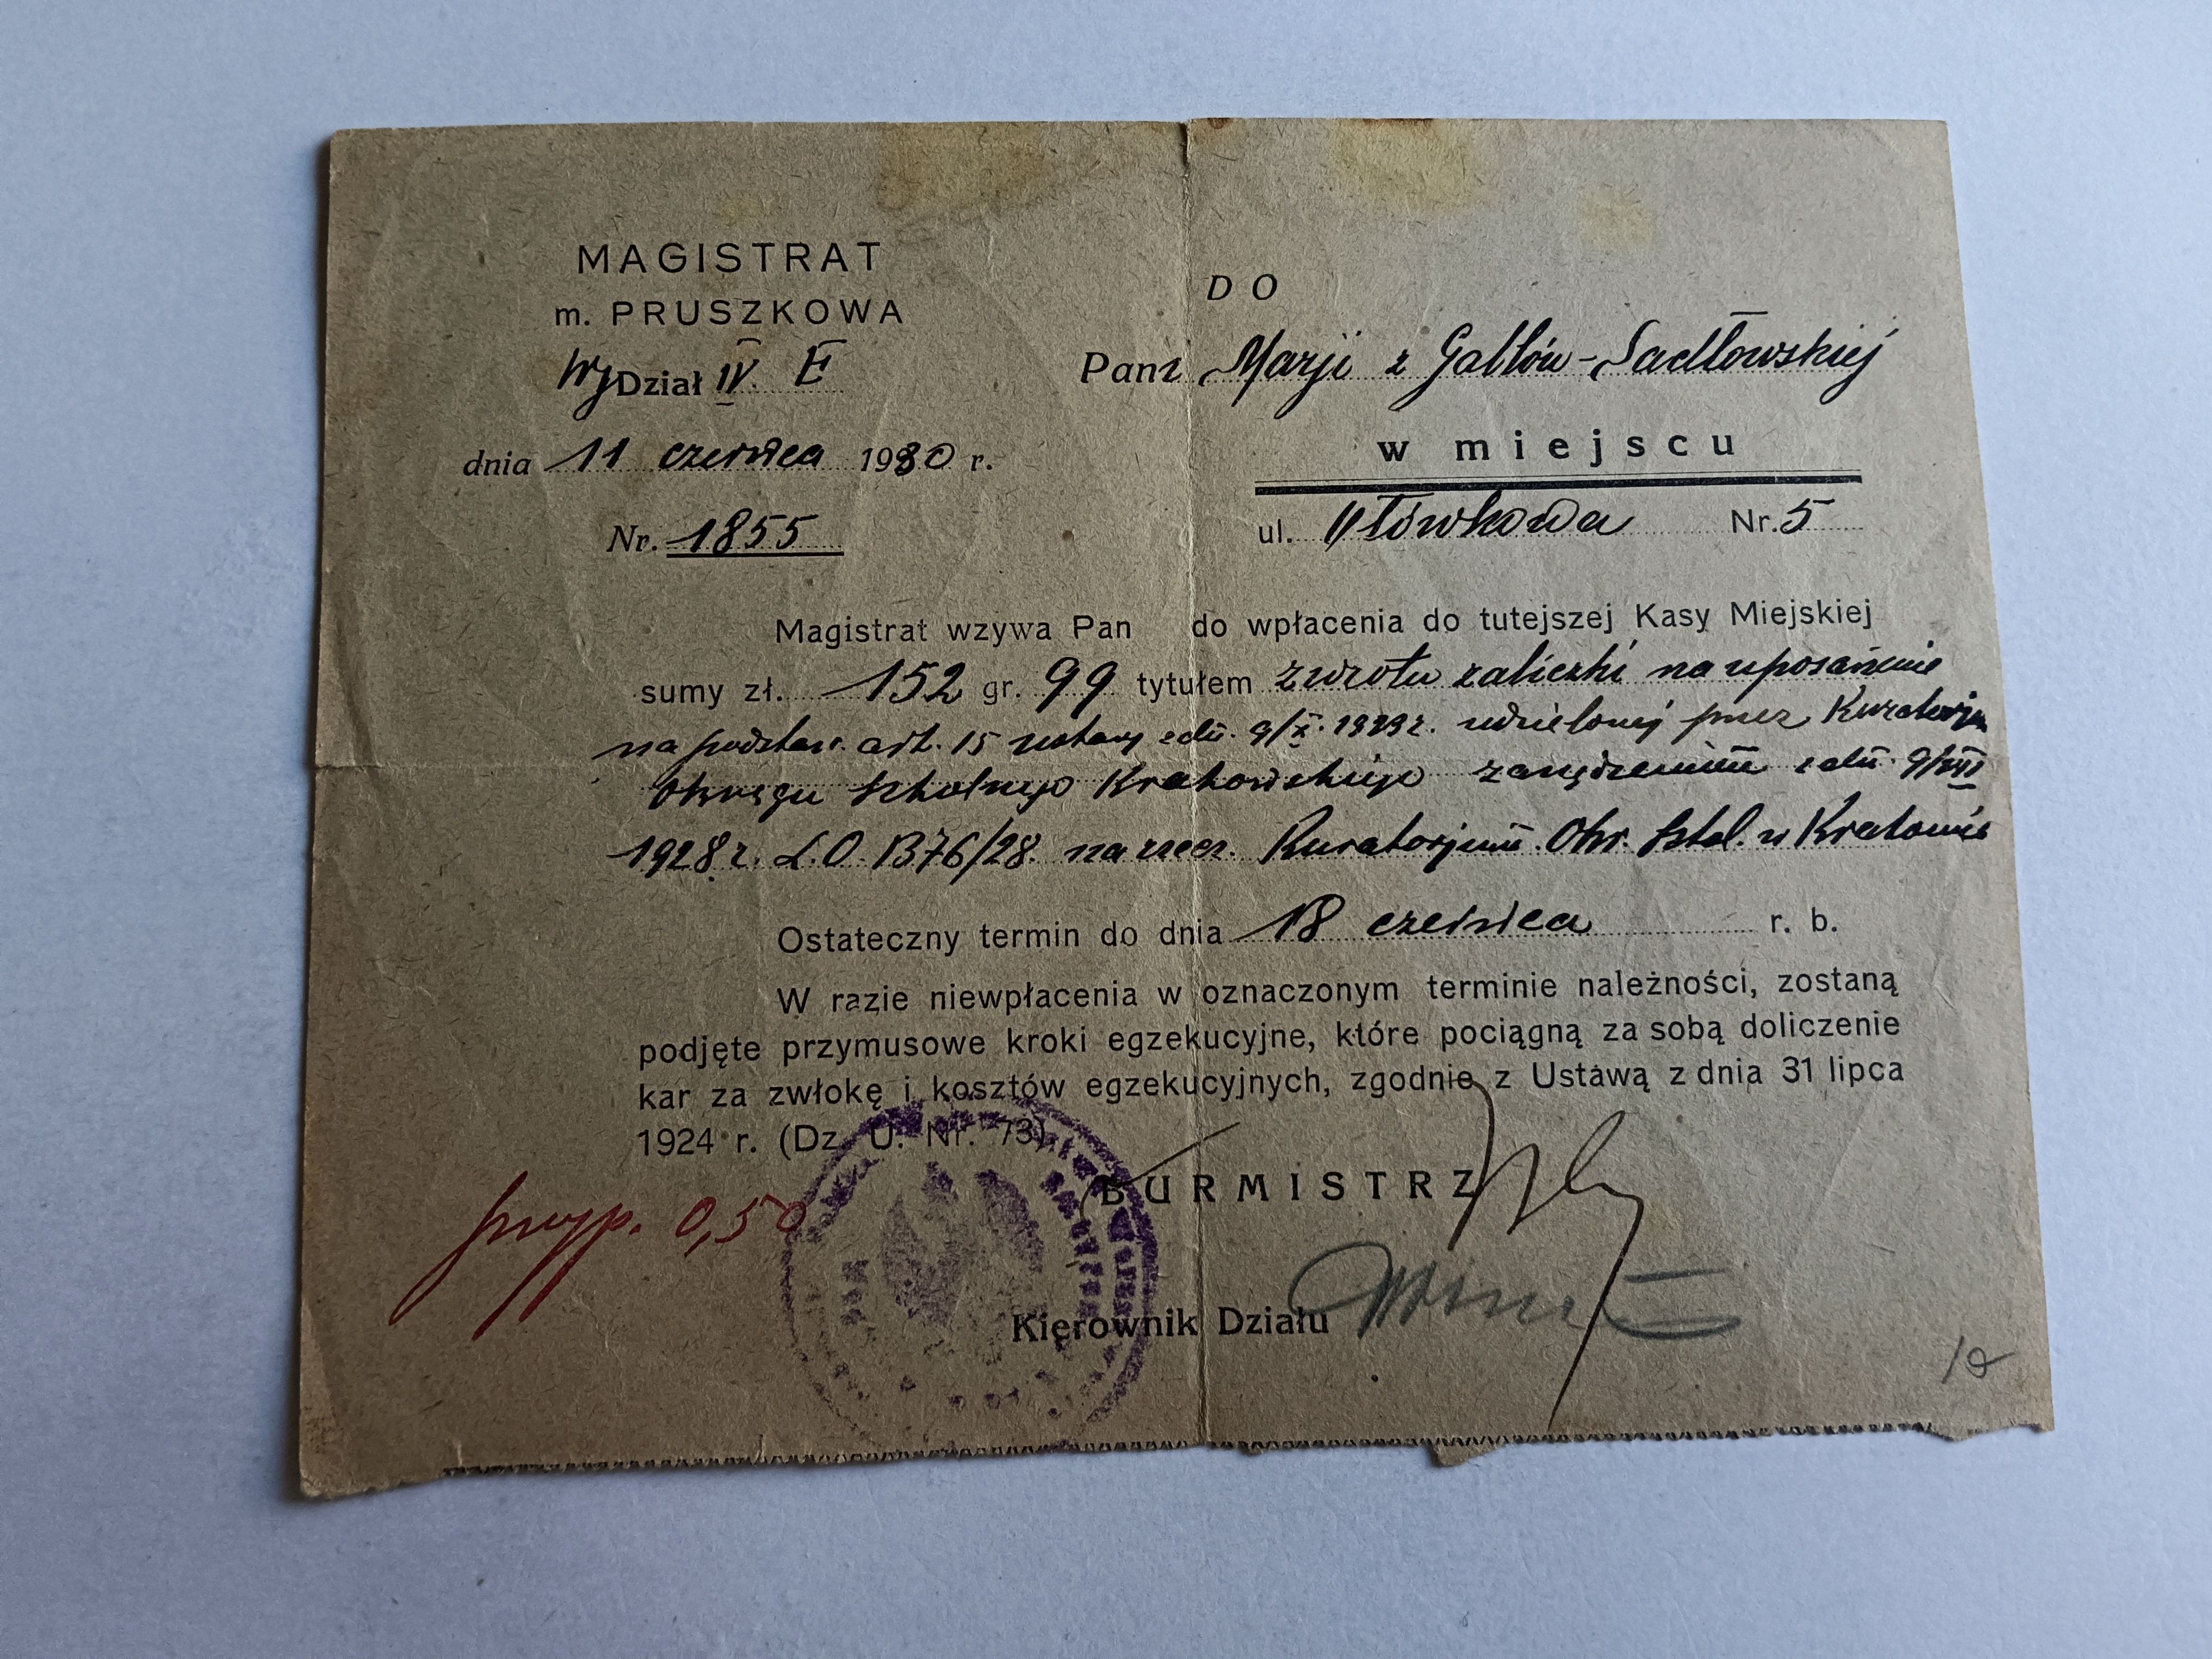 MAGISTRAT
m. PRUSZKOWA
WyDział IV. E
dnia 11 czerwca 1930 r.
Nr. 1855
DO
Pani Marji z Gablów-Sadłowskiej
w miejscu
ul. Ołówkowa Nr. 5
Magistrat wzywa Pan do wpłacenia do tutejszej Kasy Miejskiej
sumy zł. 152 gr. 99 tytułem zwrotu zaliczki na uposażenie
na podstaw. art. 15 ustawy z dn. 9/X. 1923 r. udzielonej przez Kuratorjum
Okręgu Szkolnego Krakowskiego zarządzeniem z dn. 9/VIII
1928 r. L.O. 1376/28. na rzecz. Kuratorjum. Okr. Szkol. w Krakowie
Ostateczny termin do dnia 18 czerwca r. b.
W razie niewpłacenia w oznaczonym terminie należności, zostaną
podjęte przymusowe kroki egzekucyjne, które pociągną za sobą doliczenie
kar za zwłokę i kosztów egzekucyjnych, zgodnie z Ustawą z dnia 31 lipca
1924 r. (Dz. U. Nr. 73).
BURMISTRZ
0,50
Kierownik Działu